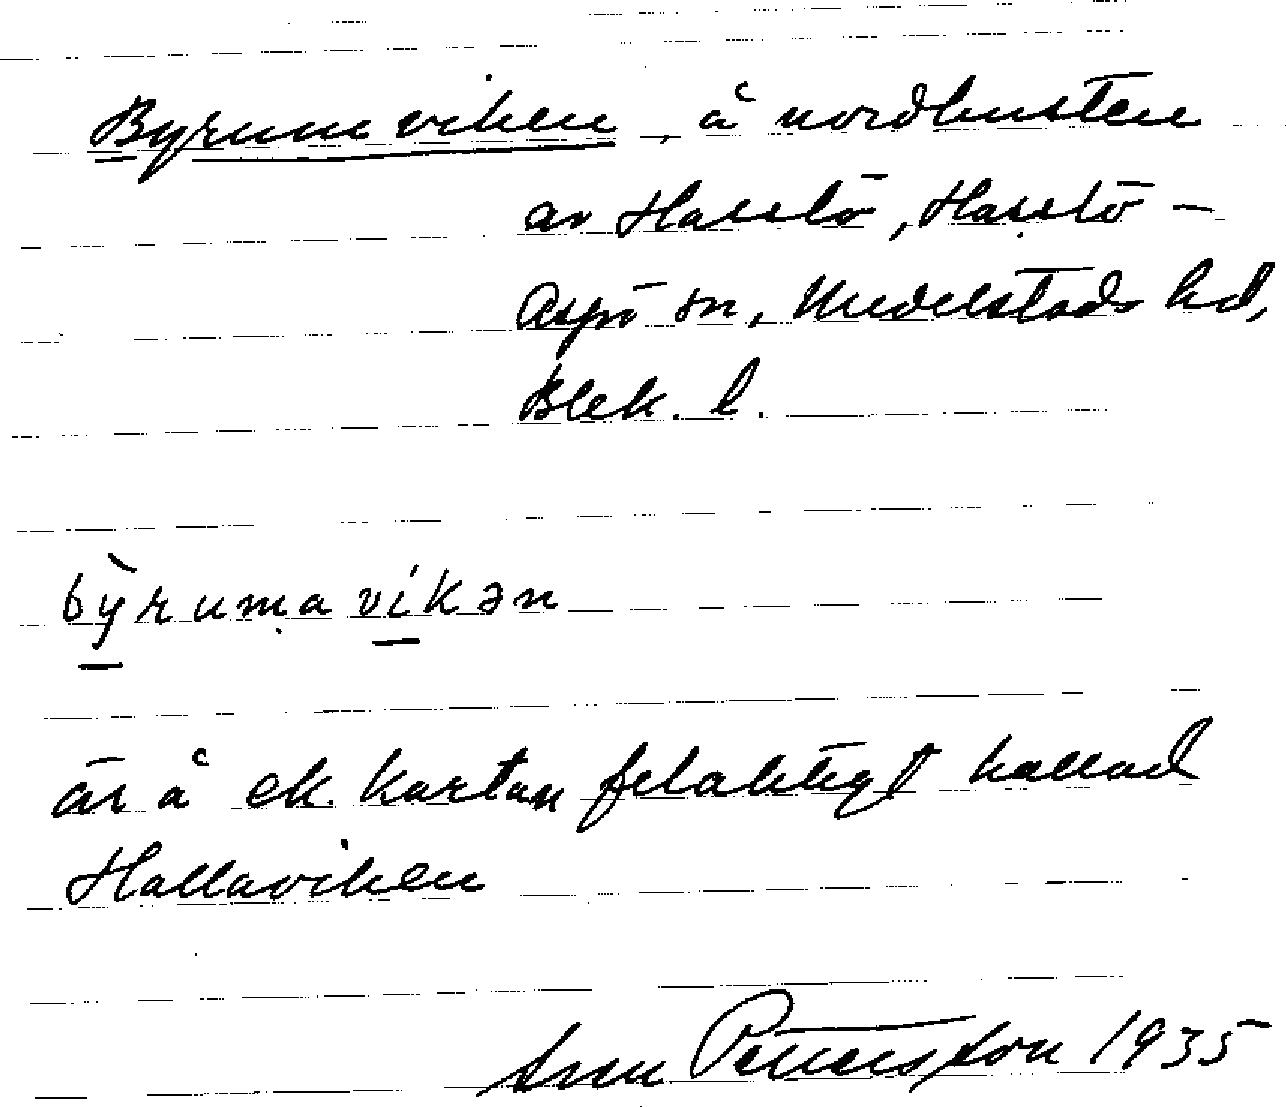 Byrumviken, å nordkusten
av Hasslö, Hasslö-
Aspö sn, Medelstads hd,
Blek. l.
býrumavíkən
är å ek. kartan felaktigt kallad
Hallaviken
Pettersson 1935